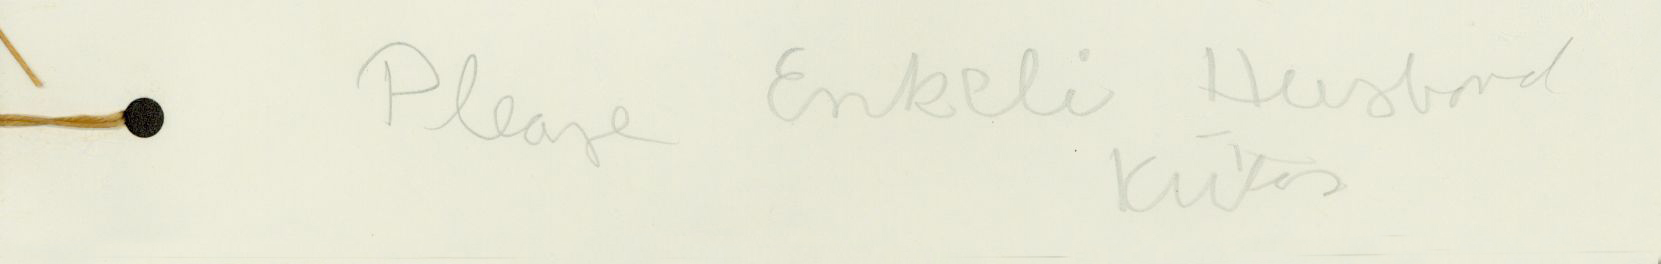 Please Enkeli Husband
Kiitos